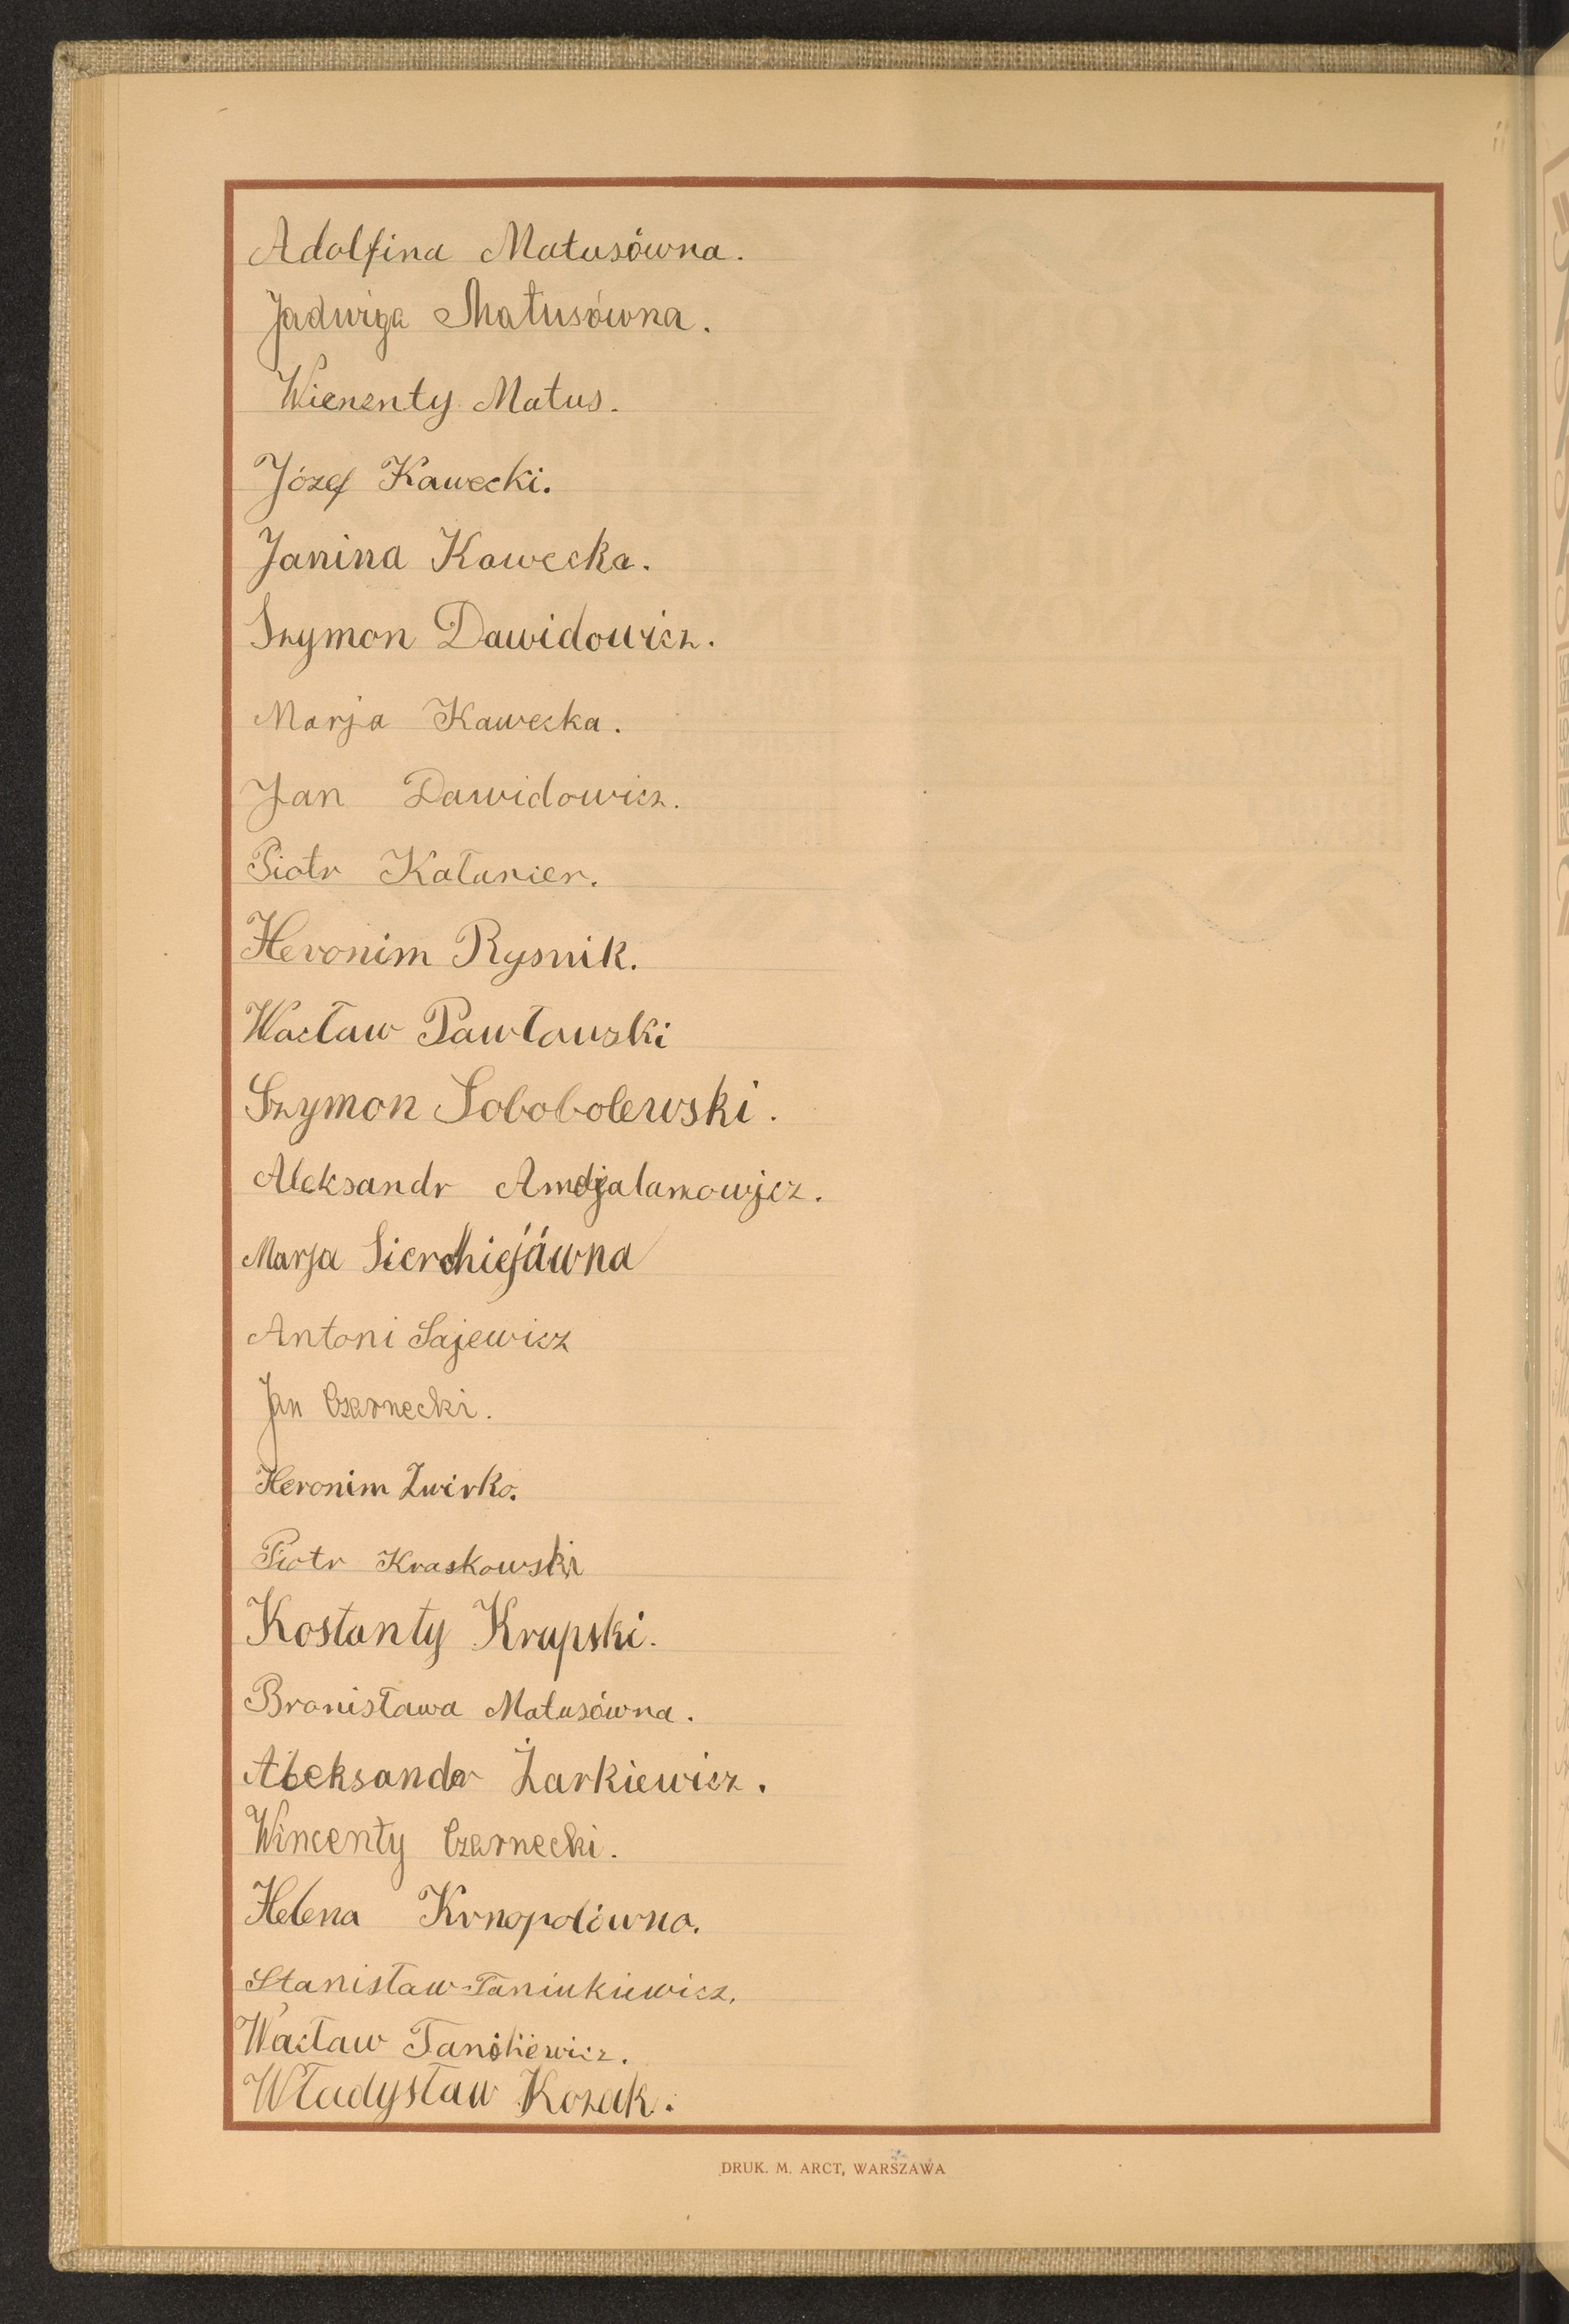 Adolfina Matusówna.
Jadwiga Matusówna.
Wienenty Matus.
Józef Kawecki.
Janina Kawecka.
Szymon Dawidowicz.
Marja Kawecka.
Jan Dawidowicz.
Piotr Katanier.
Heronim Rysnik.
Wacław Pawłowski
Szymon Sobobolewski.
Aleksandr
Marja Sierchiejówna
Antoni Sajewicz
Jan Czarnecki.
Heronim Zwirko.
Piotr Kraskowski
Kostanty Krupski.
Bronisława Matusówna.
Aleksander Żarkiewicz.
Wincenty Czarnecki.
Helena Krnopolówna.
Stanisław Taniukiewicz.
Wacław
Władysław Kozak.
DRUK. M. ARCT, WARSZAWA